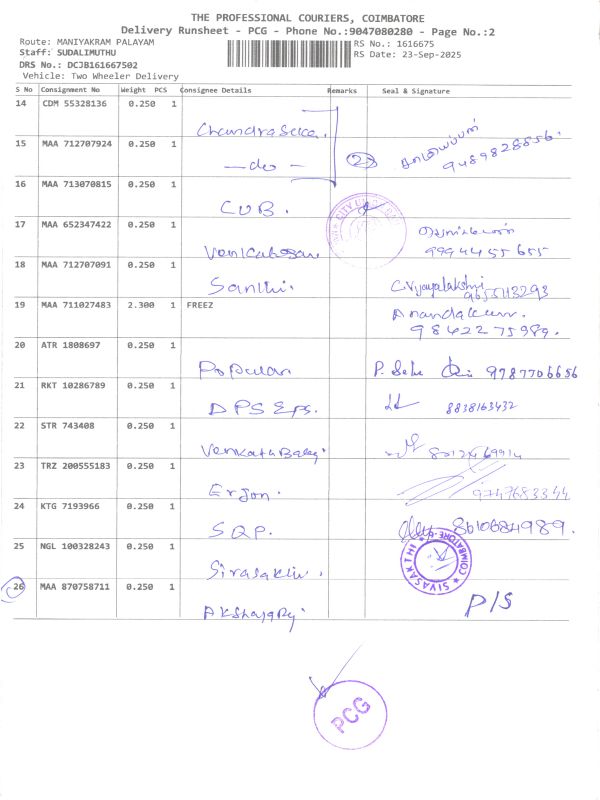 THE PROFESSIONAL COURIERS, COIMBATORE
Delivery Runsheet - PCG - Phone No.:9047080280 - Page No.:2
Route: MANIYAKRAM PALAYAM
RS No.: 1616675
Staff: SUDALIMUTHU
RS Date: 23-Sep-2025
DRS No.: DCJB161667502
Vehicle: Two Wheeler Delivery
S No Consignment No Weight PCS Consignee Details Remarks Seal & Signature
14 CDM 55328136 0.250 1
15 MAA 712707924 0.250 1
- do - 2 9489828856.
16 MAA 713070815 0.250 1
CUB.
17 MAA 652347422 0.250 1
9994455655
18 MAA 712707091 0.250 1
Santhi. C.Vijayalakshmi
9655113293
19 MAA 711027483 2.300 1 FREEZ
9842275989.
20 ATR 1808697 0.250 1
Popular P. 9787706656
21 RKT 10286789 0.250 1
DPS 8838163432
22 STR 743408 0.250 1
8012469914
23 TRZ 200555183 0.250 1
Erjon. 9747683344
24 KTG 7193966 0.250 1
SQP. 8610684989.
25 NGL 100328243 0.250 1
SIVASAKTHI COIMBATORE
26 MAA 870758711 0.250 1
P/S
PCG